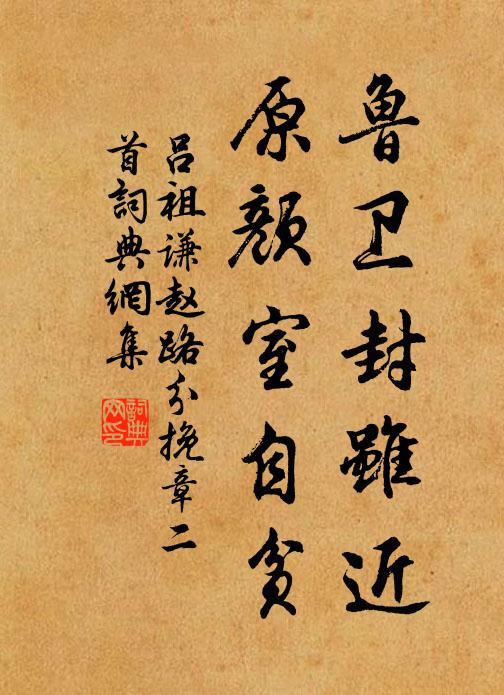 鲁卫封雖近
原顏室自貧
吕祖谦赵路分挽章二
首詞典網集
詞典网印